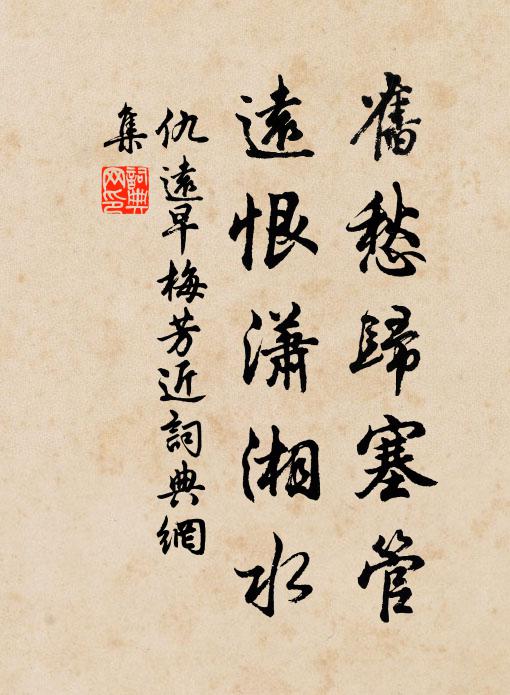 舊愁歸塞管
遠恨瀟湘水
仇遠早梅芳近詞典網
集
詞典
网印